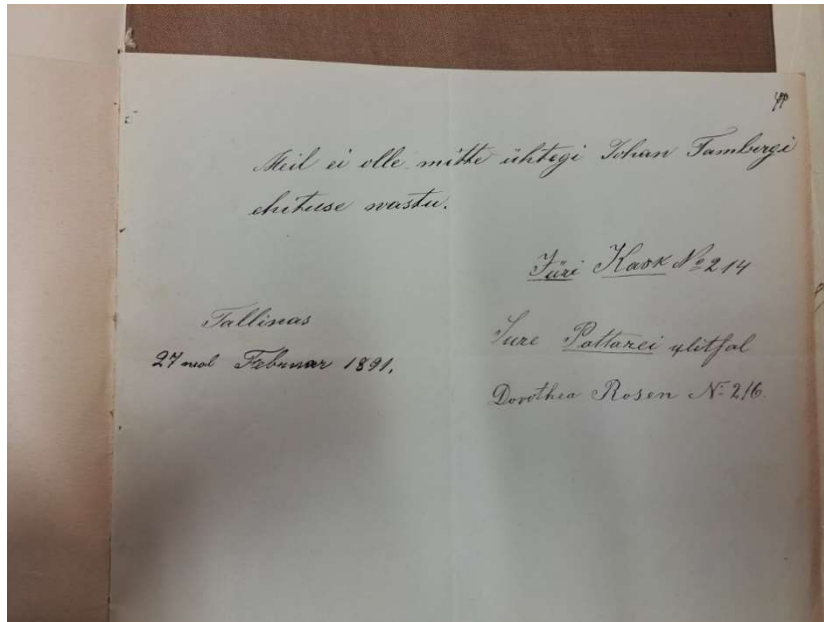 Meil ei olle mitte ühtegi Johan Tambergi
ehituse wastu.
Jüri Kask № 214
Tallinas
27mal Februar 1891.
Jure Pottarei
Dorothea Rosen № 216.